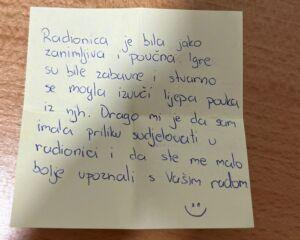 Radionica je bila jako
zanimljiva i poučna. Igre
su bile zabavne i stvarno
se mogla izvući lijepa pouka
iz njh. Drago mi je da sam
imala priliku sudjelovati u
radionici i da ste me malo
bolje upoznali s Vašim radom